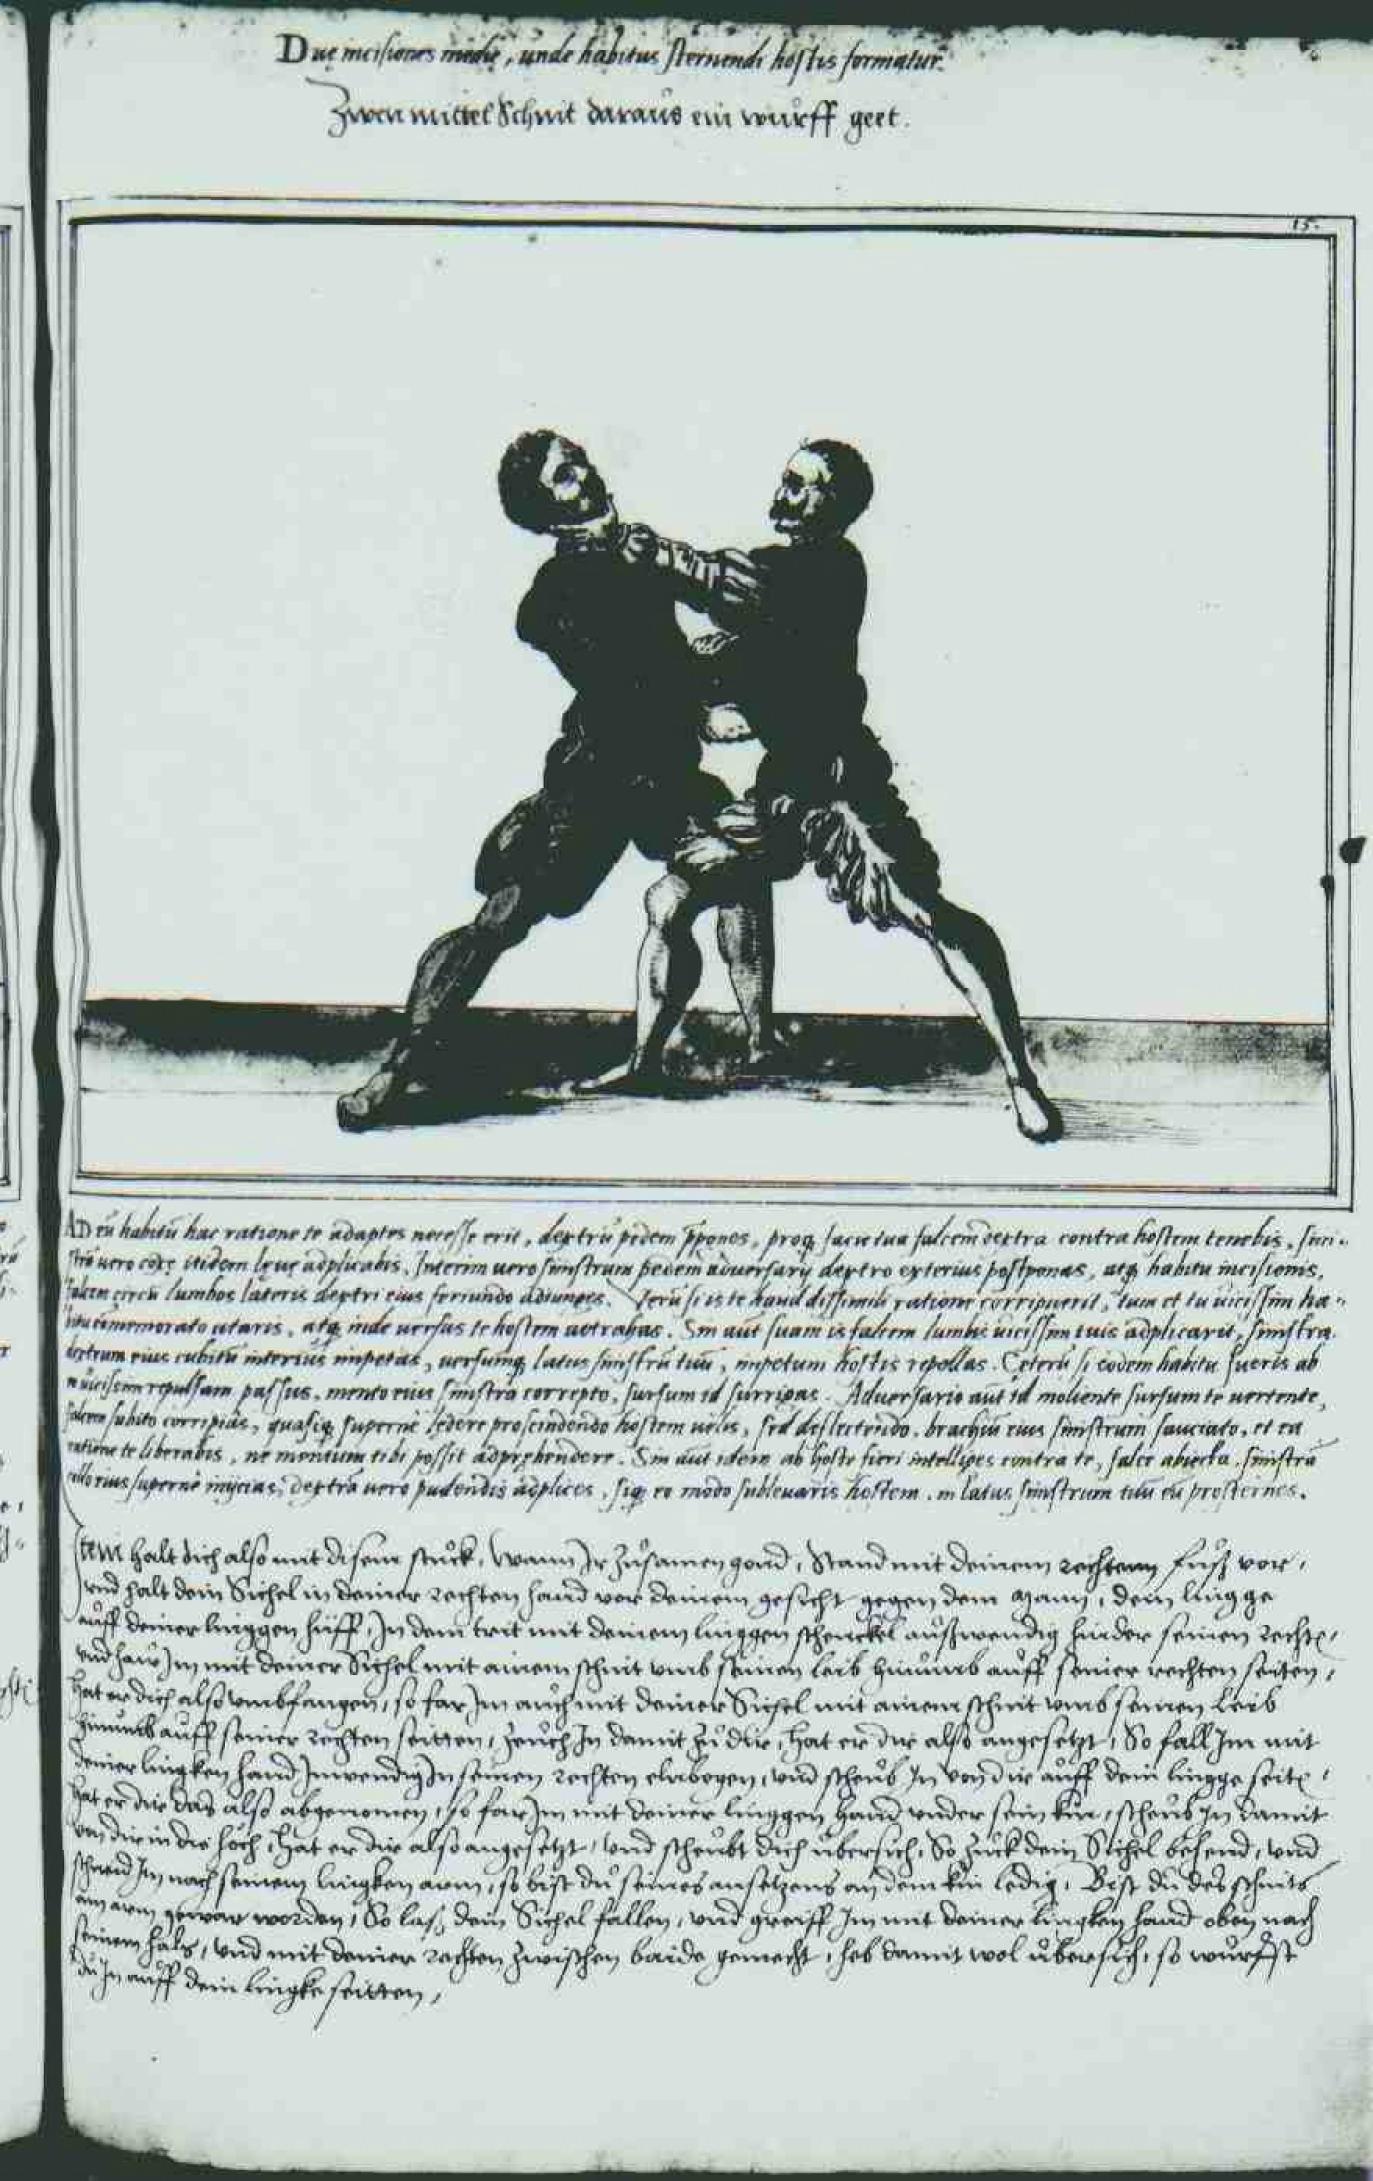 Duę incisiones medię, unde habitus sternendi hostis formatur.
Zwen mittel Schnit daraus ein wurff geet.
15.
AD eū habitū hac ratione te adaptes necesse erit, dextrū pedem p̄ponas, proq̨ facie tua falcem dextra contra hostem tenebis, sini-
strā vero coxę itidem lęvę adplicabis. Interim vero sinistrum pedem adversarÿ dextro exterius postponas, atq̨ habitu incisionis,
falcem circū lumbos lateris dextri eius feriundo adiunges. Verū si is te haud dissimili ratione corripuerit, tum et tu vicissim ha-
bitu cōmemorato utaris, atq̨ inde versus te hostem attrahas. Sin aut suam is falcem lumbis vicissim tuis adplicarit, sinistra
dextrum eius cubitū interius impetas, versumq̨ latus sinistrū tuū, impetum hostis repellas. Ceterū si eodem habitu fueris ab
eo vicissim repulsam passus, mento eius sinistra correpto, sursum id surripas. Adversario aut id moliente sursum te vertente,
falcem subito corripias, quasiq̨ superne ledere proscindendo hostem velis, sed deflectendo, brachiū eius sinistrum sauciato, et ea
ratione te liberabis, ne mentum tibi possit adprehendere. Sin aut idem ab hoste fieri intelliges contra te, falce abiecta, sinistrā
collo eius superne inijcias, dextrā vero pudendis adplices, sicq̨ eo modo sublevaris hostem, in latus sinistrum tuū eū prosternes.
Item halt dich also mit disem stuck, Wann Ir zusamen gond, Stand mit deinem rechtenn fusz vor,
vnd halt dein Sichel in deiner rechten hand vor deinem gesicht gegen dem man, dein lingge
auff deiner linggen hüff, In dem trit mit deinem linggen schenckel auszwendig hinder seinen rechtē,
vnd haw Im mit deiner Sichel mit ainem schnit vmb seinen leib hinumb auff seiner rechten seiten,
hat er dich also vmbfangen, so far Im auch mit deiner Sichel mit ainem schnit vmb seinen Leib
hinumb auff seiner rechten seitten, Zeuch In damit zu dir, hat er dir also angesetzt, So fall Im mit
deiner lingken hand Inwendig In seinen rechten elnbogen, vnd scheub In von dir auff dein lingge seitē,
hat er dir das also abgenomen, so far Im mit deiner linggen hand vnder sein kin, scheub In damit
von dir in die höch, hat er dir also angesetzt, vnd scheubt dich ubersich, So zuck dein Sichel behend, vnd
schneid Im nach seinem lingken arm, so bist du seines ansetzens an dem kin ledig, Bist du des schnits
am arm gewar worden, So lasz dein Sichel fallen, vnd greiff Im mit deiner lingken hand oben nach
seinem hals, vnd mit deiner rechten zwischen baide gemecht, heb damit wol ubersich, so wurfst
du In auff dein lingke seitten,